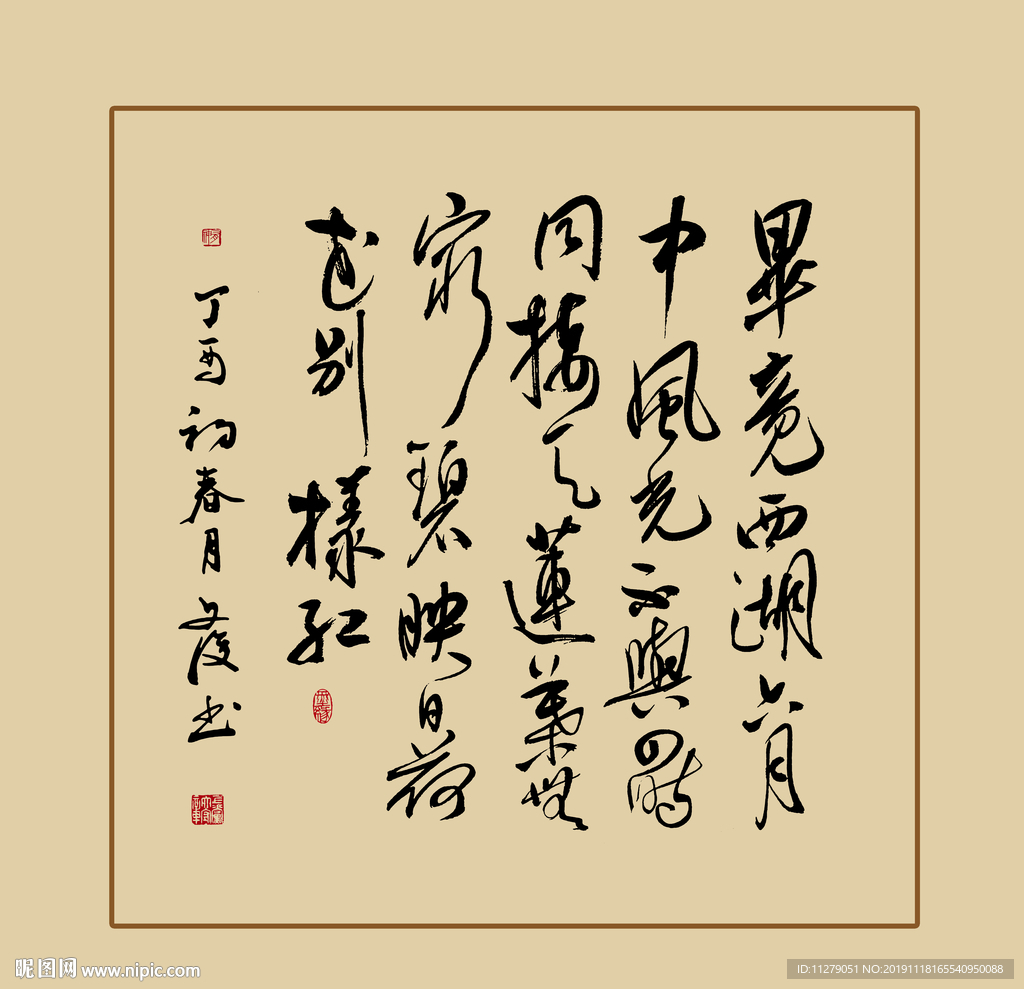 畢竟西湖六月
中風光不與四時
同接天蓮葉無
窮碧映日荷
花別樣紅
丁酉初春月文俊书
昵图网 www.nipic.com
ID:11279051 NO:20191118165540950088